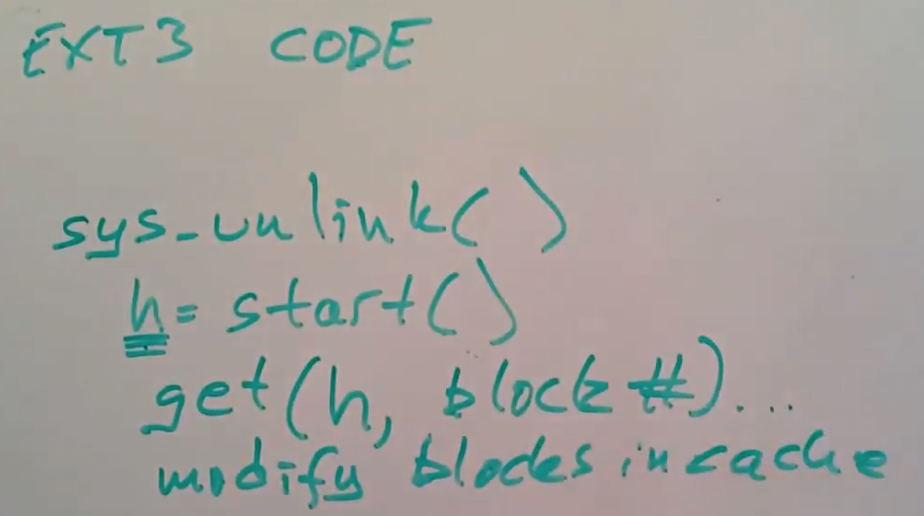 EXT3 CODE
sys_unlink()
h = start()
get(h, block #)...
modify blocks in cache